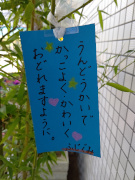 うんどうかいで
かっこよく、かわいく
おどれますように。